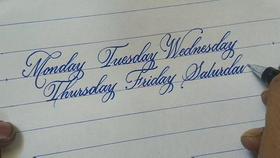 Monday Tuesday Wednesday
Thursday Friday Saturday